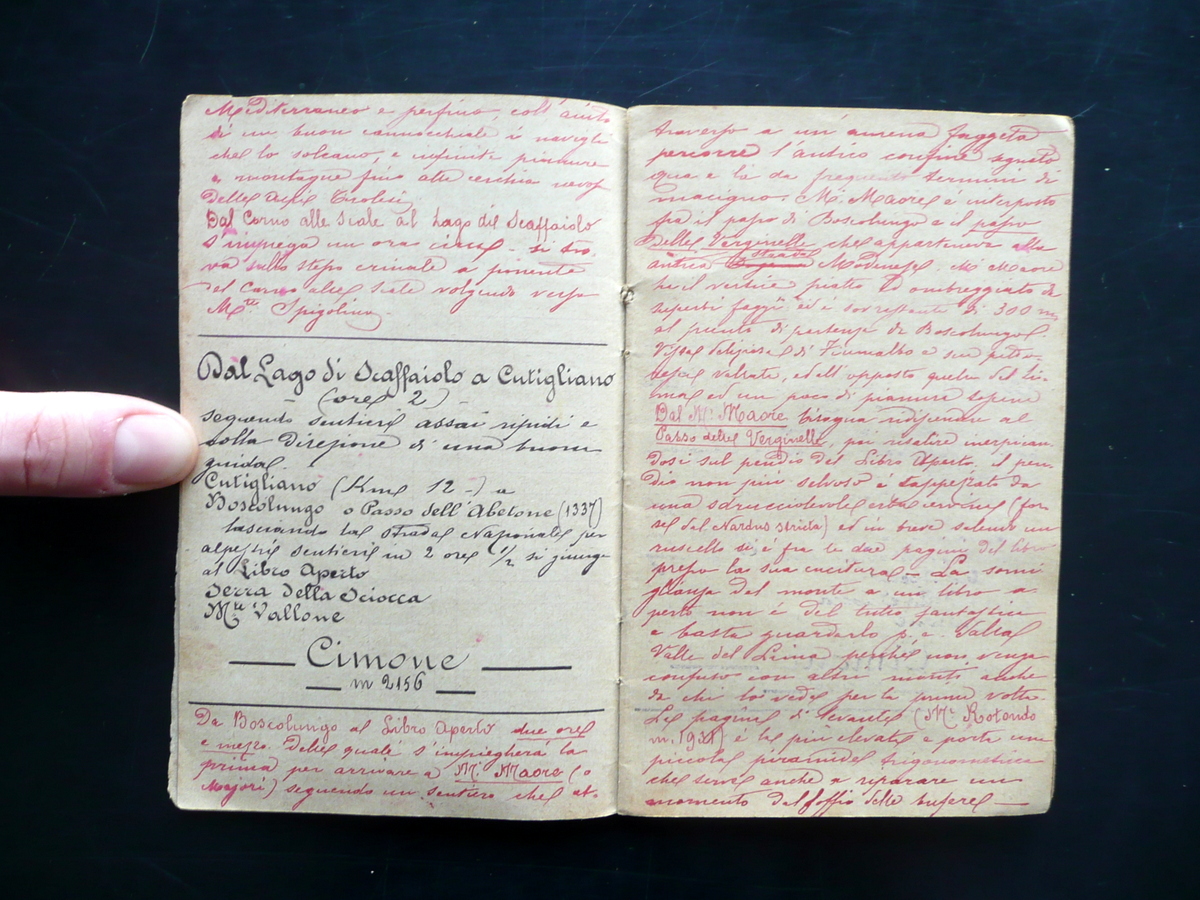 Mediterraneo e perfino, coll'aiuto
di un buon cannocchiale i navigli
che lo solcano, e infinite pianure
e montagne fino alla cerchia nevosa
delle Alpi Tirolesi
Dal Corno alle Scale al Lago di Scaffaiolo
s'impiega un ora circa - si tro
va sullo stesso crinale a ponente
del Corno alle Scale volgendo verso
M.te Spigolino
Dal Lago di Scaffaiolo a Cutigliano
(ore 2)
seguendo sentieri assai ripidi e
colla direzione di una buona
guida.
Cutigliano (Km 12 -) a
Boscolungo o Passo dell'Abetone (1337)
lasciando la strada Nazionale per
alpestri sentieri in 2 ore 1/2 si giunge
al Libro Aperto
Serra della Sciocca
M.te Vallone
Cimone
m 2156
Da Boscolungo al Libro Aperto due ore
e mezo. Delle quali s'impiegherà la
prima per arrivare a M. Maore (o
Majori) seguendo un sentiero che at-
traverso a un'amena faggeta
percorre l'antico confine segnato
qua e là da frequenti termini di
macigno. M. Maore è interposto
fra il passo di Boscolungo e il passo
delle Verginelle che apparteneva alla
antica strada Modenese. M. Maore
ha il vertice piatto ed ombreggiato da
superbi faggi ed è sovrastante di 300 m
al punto di partenza da Boscolungo.
Vista deliziosa di Fiumalbo e sua pitto-
resca vallata, e dall'opposto quella del Li-
ma ed un poco di pianure
Dal M. Maore bisogna ridiscendere al
Passo delle Verginelle, poi risalire inerpican
dosi sul pendio del Libro Aperto, il pen
dio non più selvoso è tappezzato da
una sdrucciolevole erba (for
se del Nardus stricta) ed in breve salendo un
ruscello si è fra le due pagine del libro
presso la sua cucitura - La somi
glianza del monte a un libro a-
perto non è del tutto fantastica
e basta guardarlo p. e. dalla
Valle del Lima perchè non venga
confuso con altri monti anche
da chi lo vede per la prima volta.
La pagina di levante (M. Rotondo
m. 1937) è la più elevata e porta una
piccola piramide trigonometrica
che serve anche a riparare un
momento dal soffio delle bufere -